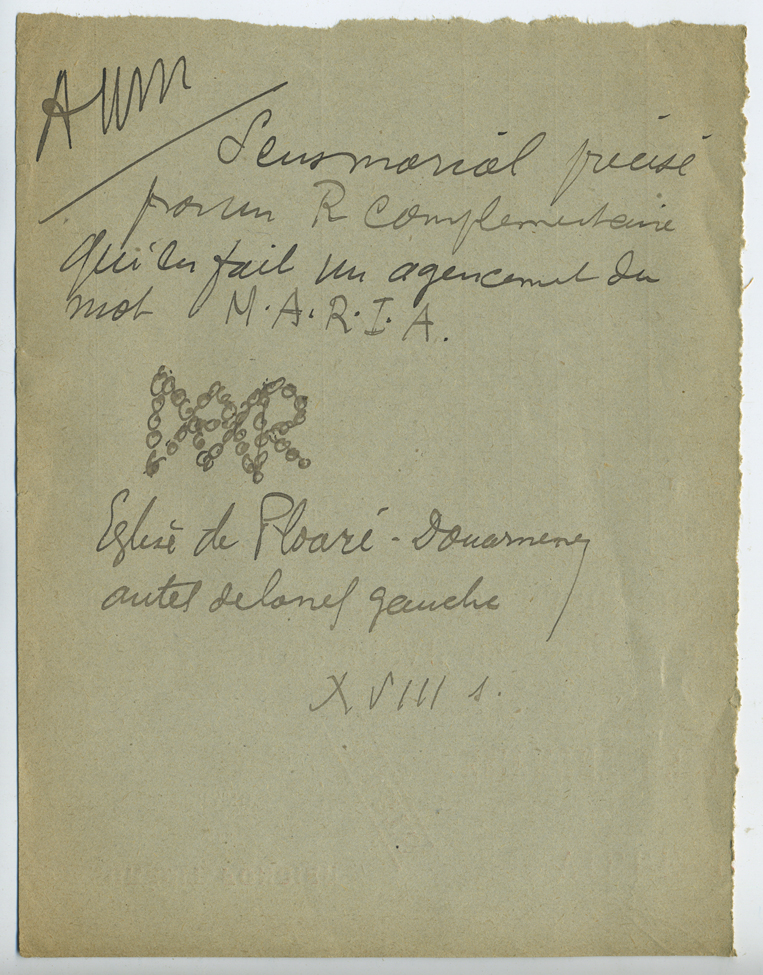 AUM
Sens marial précisé
par un R complementaire
qui en fait un agencement du
mot M.A.R.I.A.
MAR
Eglise de Ploaré - Douarnenez
autel de la nef gauche
XVIII s.